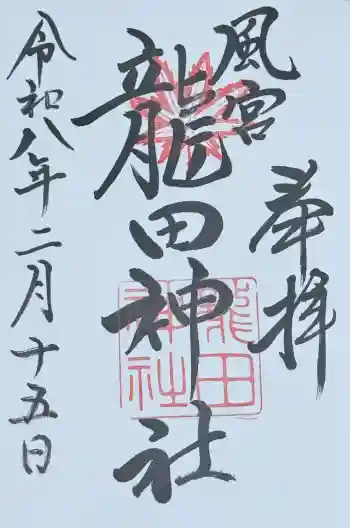 奉拝
風宮
龍田神社
龍田
神社
令和八年二月十五日